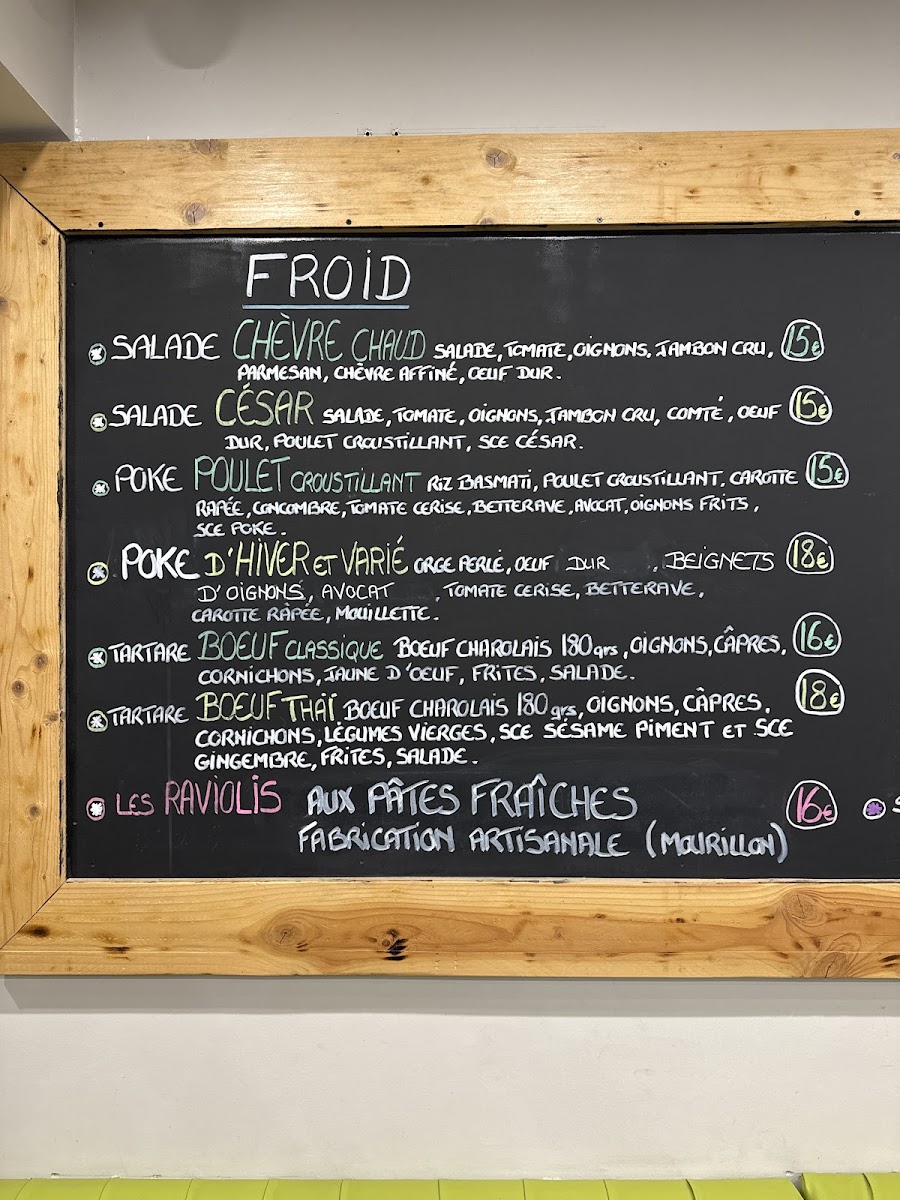 FROID
SALADE CHÈVRE CHAUD SALADE, TOMATE, OIGNONS, JAMBON CRU, 15€
PARMESAN, CHÈVRE AFFINÉ, OEUF DUR.
SALADE CÉSAR SALADE, TOMATE, OIGNONS, JAMBON CRU, COMTÉ, OEUF 15€
DUR, POULET CROUSTILLANT, SCE CÉSAR.
POKE POULET CROUSTILLANT RIZ BASMATI, POULET CROUSTILLANT, CAROTTE 15€
RAPÉE, CONCOMBRE, TOMATE CERISE, BETTERAVE, AVOCAT, OIGNONS FRITS,
SCE POKE.
POKE D'HIVER ET VARIÉ ORGE PERLÉ, OEUF DUR , BEIGNETS 18€
D'OIGNONS, AVOCAT , TOMATE CERISE, BETTERAVE,
CAROTTE RÂPÉE, MOUILLETTE.
TARTARE BOEUF CLASSIQUE BOEUF CHAROLAIS 180grs, OIGNONS, CÂPRES, 16€
CORNICHONS, JAUNE D'OEUF, FRITES, SALADE.
TARTARE BOEUF THAÏ BOEUF CHAROLAIS 180grs, OIGNONS, CÂPRES, 18€
CORNICHONS, LÉGUMES VIERGES, SCE SÉSAME PIMENT ET SCE
GINGEMBRE, FRITES, SALADE.
LES RAVIOLIS AUX PÂTES FRAÎCHES 16€
FABRICATION ARTISANALE (MOURILLON)